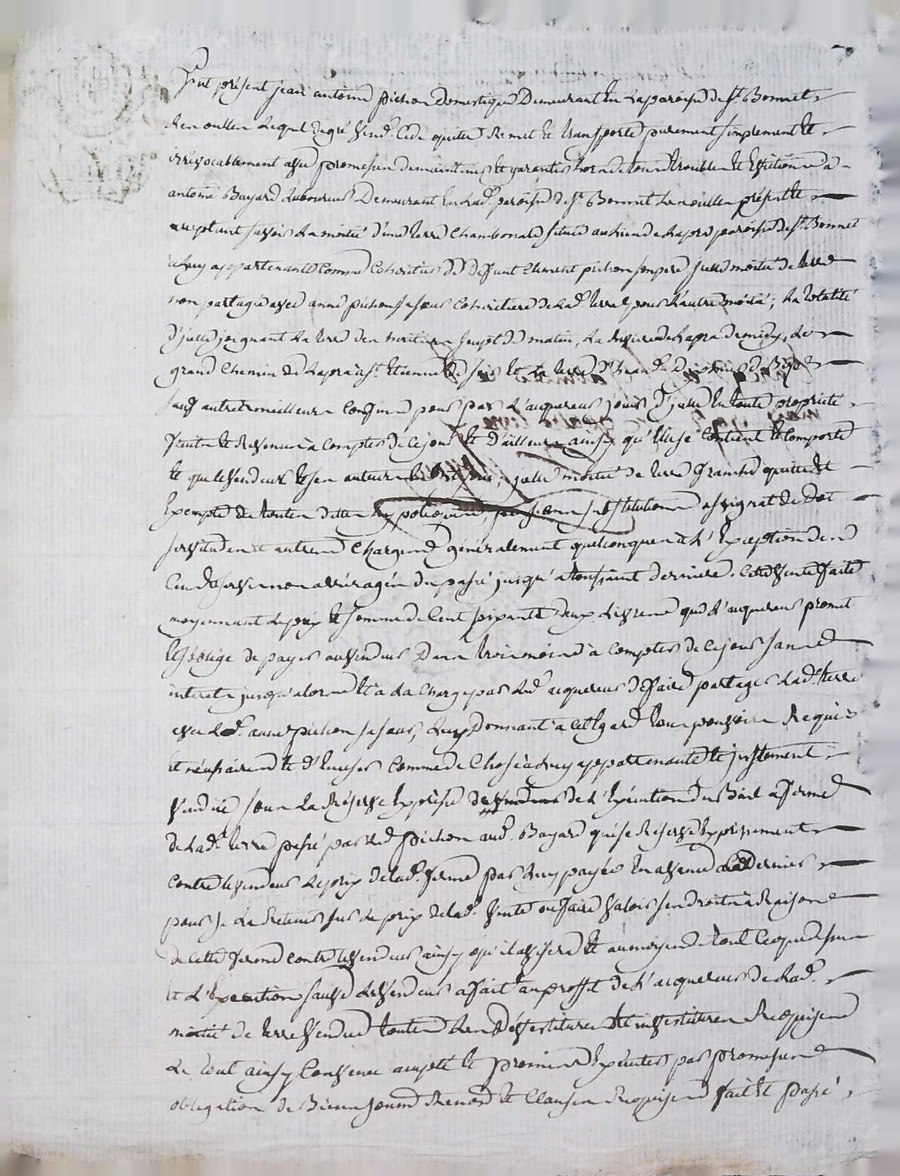 Fut présent jean antoine pichon domestique Demeurant En la paroisse de St Bonnet
Lequel de gré vend, Cede quitte Remet Et transporte purement simplement Et
irrévocablement avec promesse de maintenir Et garantir de tous troubles Et Evictions à
antoine Bayard Laboureur Demeurant En lad. paroisse de St Bonnet présent Et
acceptant savoir La moitié d'une terre Chambonale située au paroisse de St Bonnet
à luy appartenante Comme Cohéritier de deffunt Clement pichon son père jcelle moitié de terre
non partagée avec anne pichon sa sœur Cohéritière de lad. terre pour L'autre moitié ; La totalité
D'jcelle joignant La terre des héritiers de matin, La Riviere de midy, le
grand Chemin de à St Etienne de soir Et La terre de de Bize
sauf autres meilleurs Confins pour par L'acquereur jouir D'jcelle En toute propriété
fruits Et Revenus à Compter de Ce jour Et D'ailleurs ainsy qu'Elle se Contient Et Comporte
Et que le vendeur Et ses auteurs jcelle moitié de terre franche quitte Et
Exempte de toutes dettes hypotheques, pensions substitutions assignat de dot
servitudes Et autres Charges généralement quelconques à L'Exception des
Cens Et servis non arréragés du passé jusqu'à la toussaint derniere. Cette vente faite
moyennant Le prix Et somme de Cent soixante deux Livres que L'acquereur promet
Et s'oblige de payer au vendeur Dans trois mois à Compter de Ce jour sans
interets jusqu'alors Et à La Charge par Led. acquereur de faire partager Lad. terre
avec Lad. anne pichon sa sœur, Luy Donnant à Cet Egard tous pouvoirs Requis
Et nécessaires Et D'En user Comme de Chose à luy appartenante Et justement
vendue sous La Réserve Expresse de L'Exécution du Bail à ferme
de Lad. terre passé par Led. pichon aud. Bayard qui se Réserve Expressément
Contre le vendeur Le prix de lad. ferme par Luy payée En avance
pour Se Le Retenir sur Le prix de lad. vente ou faire valoir ses droits à Raison
de Cette ferme Contre Le vendeur ainsy qu'il avisera Et au moyen de tout Ce que dessus
Et L'Execution Le vendeur a fait au proffit de L'acquereur de Lad.
moitié de terre vendue toutes Les Dévestitures Et investitures Requises
Le tout ainsy Convenu accepté Et promis Exécuter par promesses
obligation de Biens soumissions Renonciations Et Clauses Requises fait Et passé